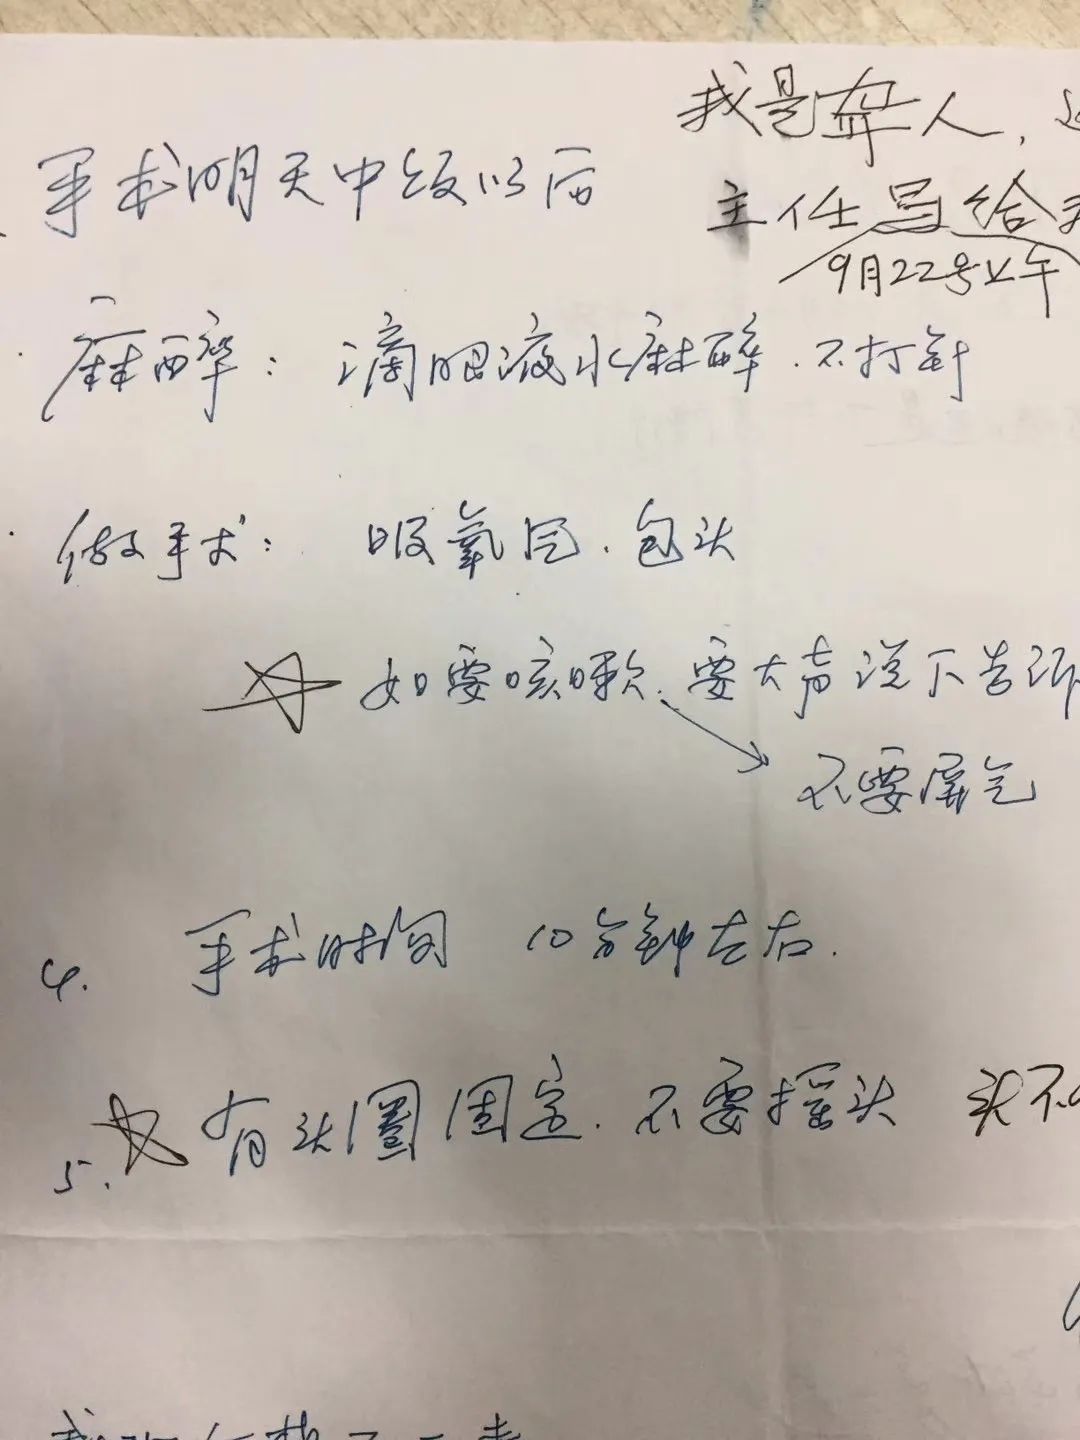 我是聋人，
手术明天中饭以后
主任写给我
9月22号上午
麻醉：滴眼液水麻醉．不打针
做手术：吸氧气．包头
如要咳嗽．要大声说下告诉
不要屏气
4. 手术时间 10分钟左右．
5. 有头圈固定．不要摇头 头不